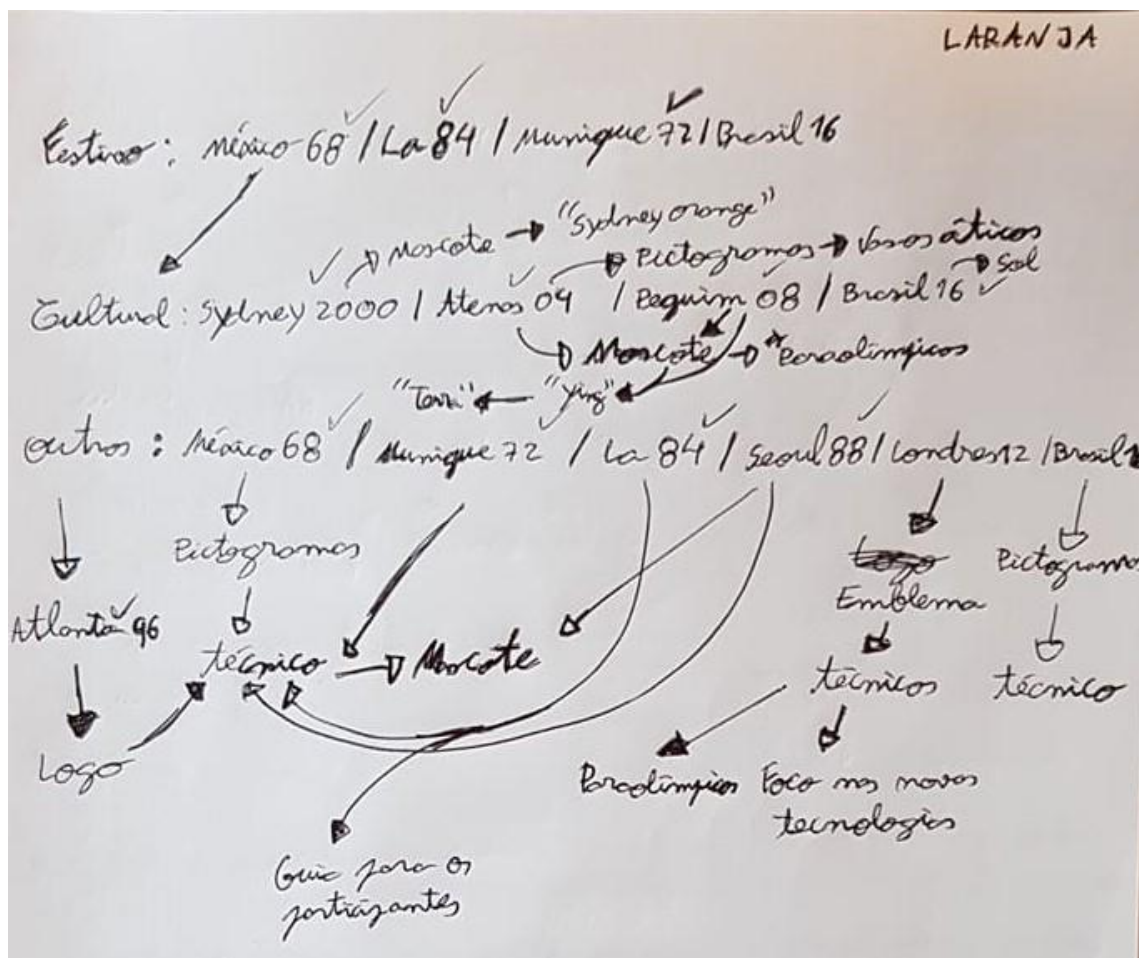 LARANJA
Festivo : México 68 / La 84 / Munique 72 / Brasil 16
Mascote "Sydney orange"
Pictogramas Vasos áticos
Sol
Cultural : Sydney 2000 / Atenas 04 / Pequim 08 / Brasil 16
Mascote Paraolímpicos
"Terra" "Ying"
Outros : México 68 / Munique 72 / La 84 / Seoul 88 / Londres 12 / Brasil
Pictogramas
Emblema
Pictogramas
Atlanta 96
técnico Mascote
técnicos
técnico
Logo
Paraolímpicos
Foco nas novas
tecnologias
Guia para os
participantes